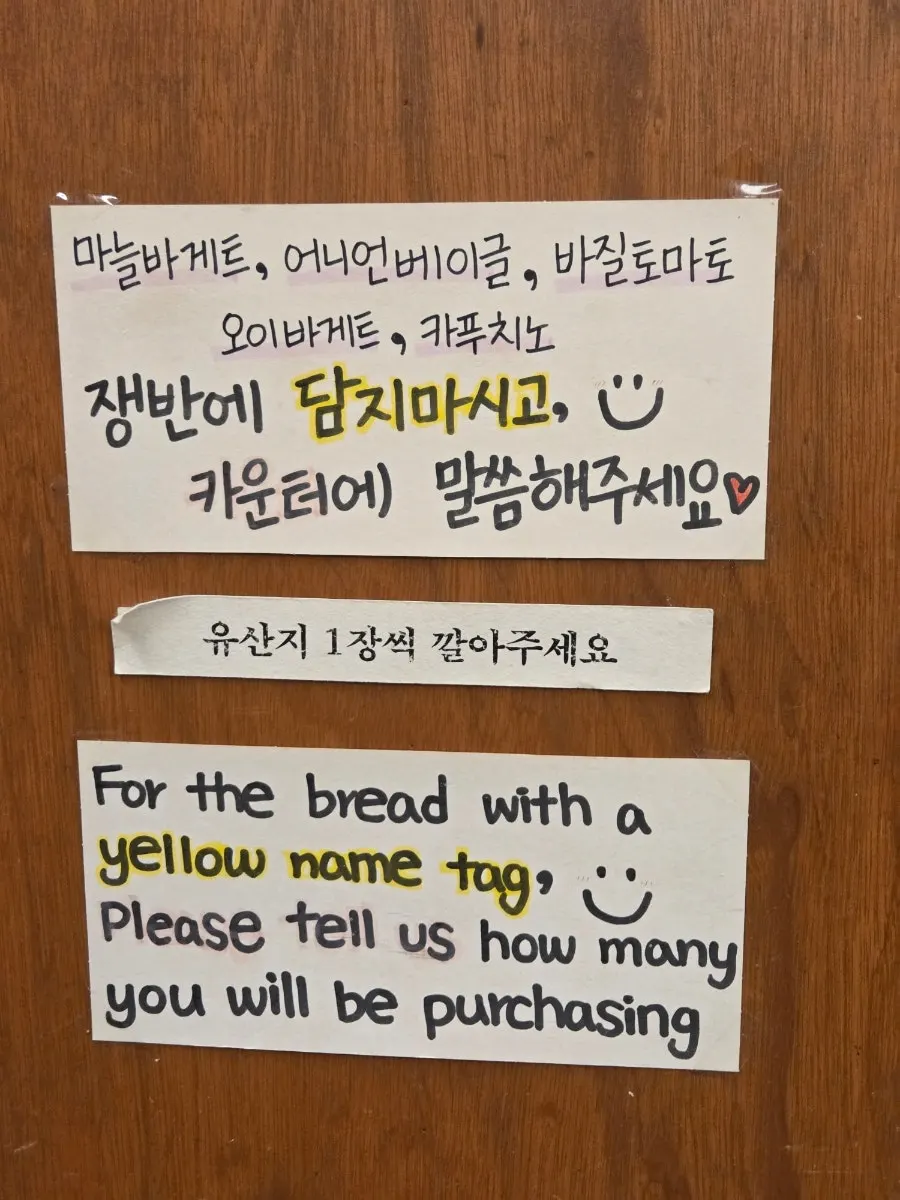 마늘바게트, 어니언베이글, 바질토마토
오이바게트, 카푸치노
쟁반에 담지마시고,
카운터에 말씀해주세요
유산지 1장씩 깔아주세요
For the bread with a
yellow name tag,
Please tell us how many
you will be purchasing